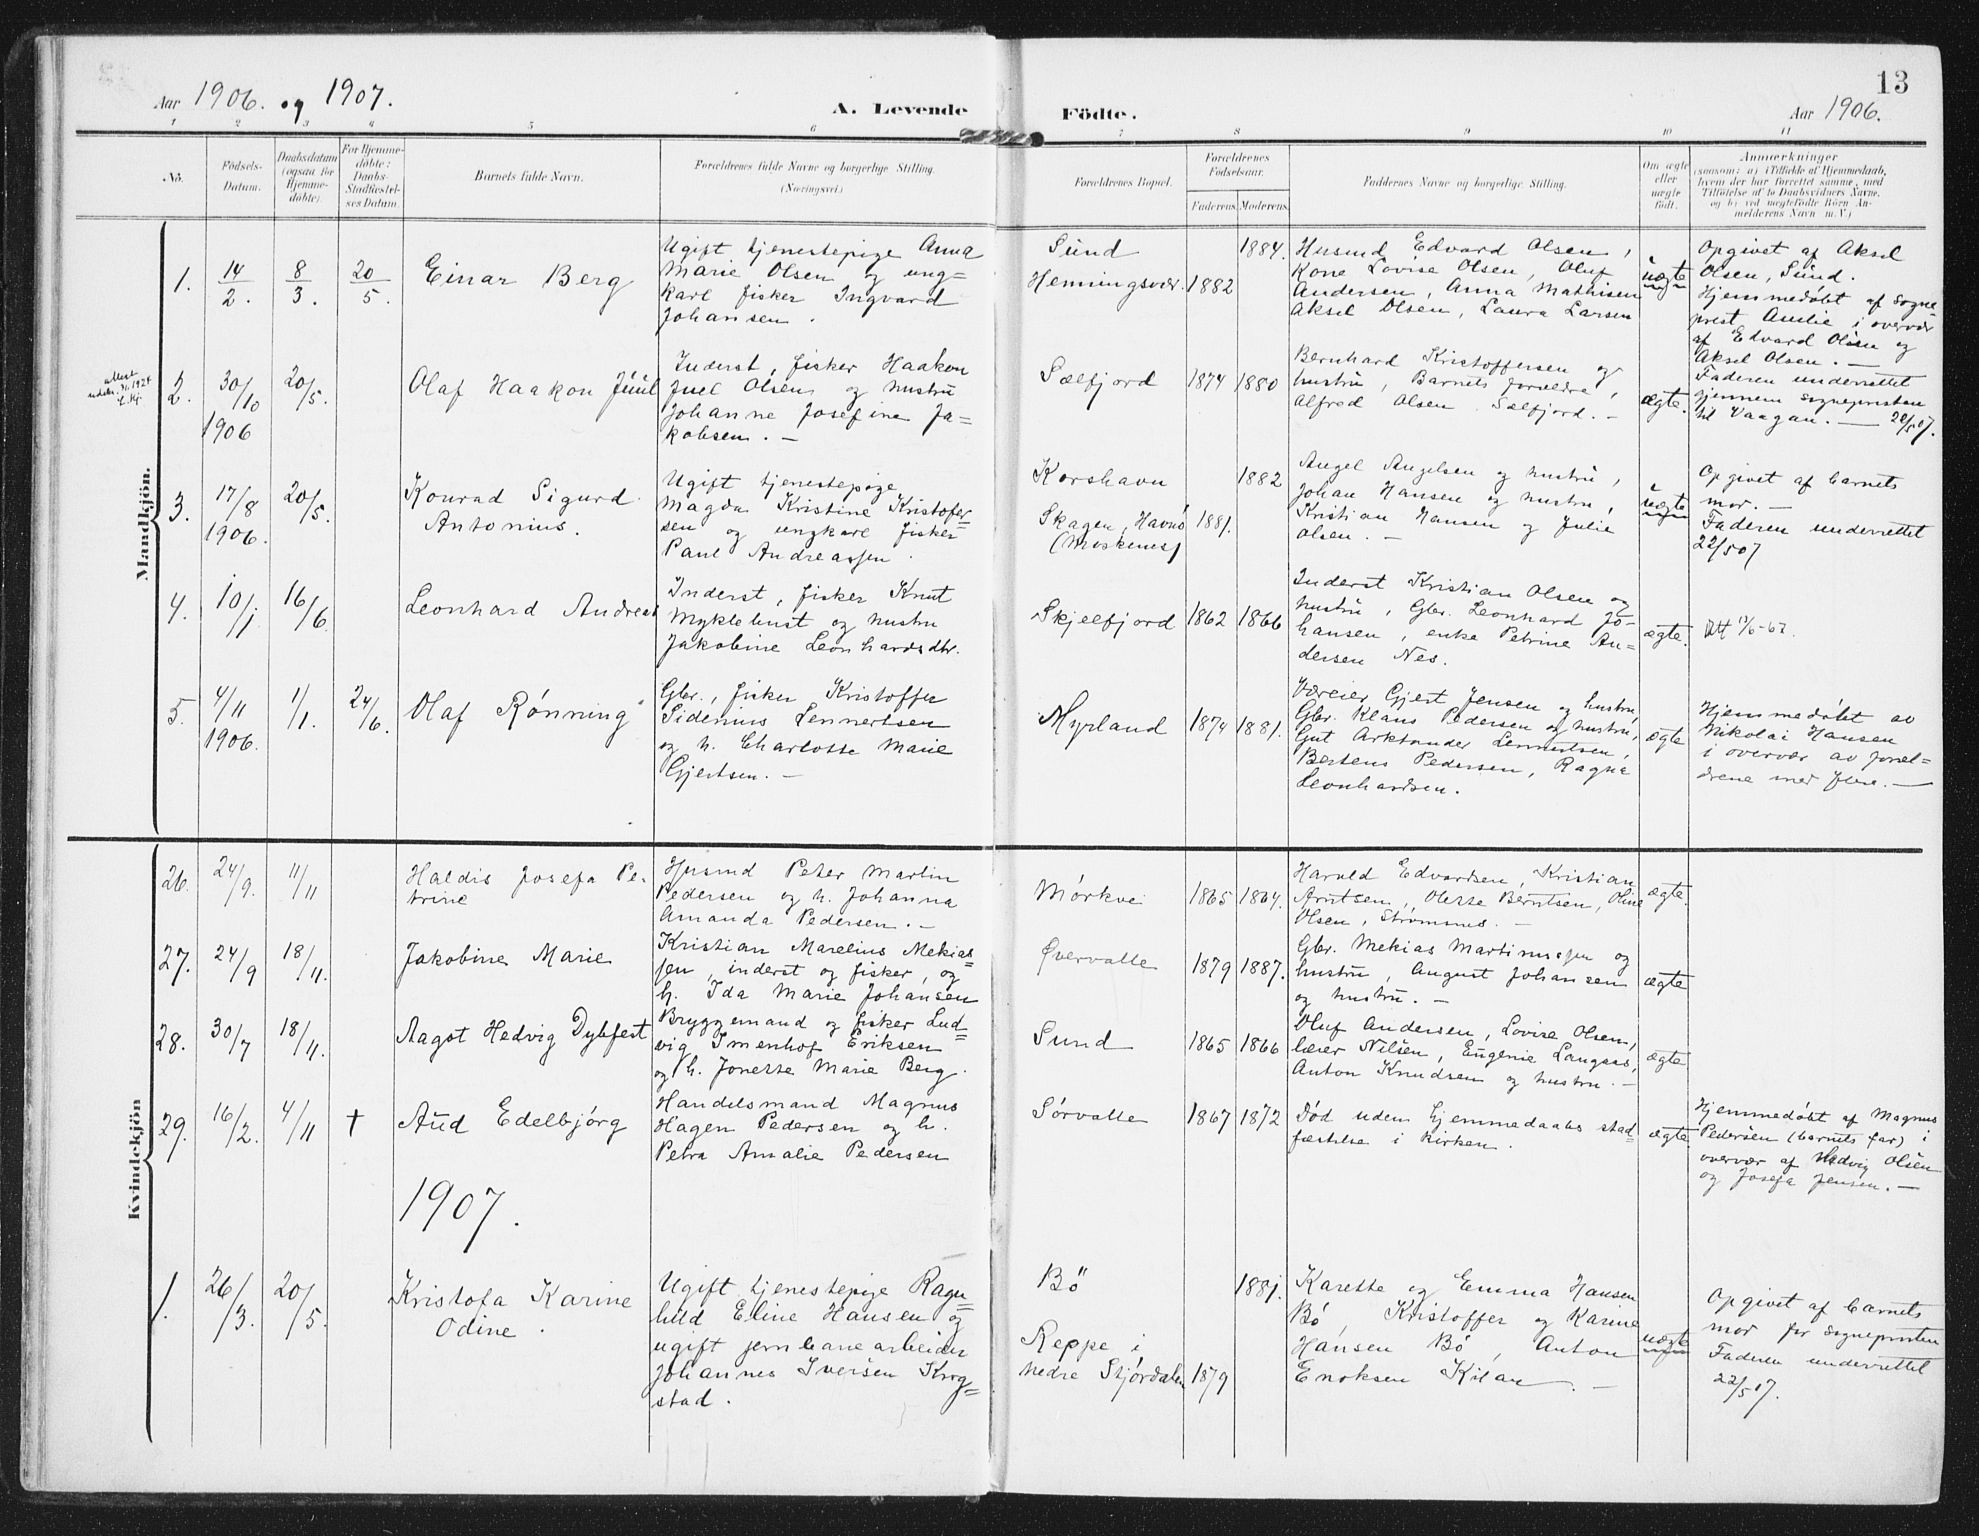 13
Aar 1906. og 1907.
A. Levende Födte.
Aar 1906.
1 2 3 4 5 6 7 8 9 10 11
No.
Födsels-
Datum.
Daabsdatum
(ogsaa for
Hjemme-
döbte).
For Hjemme-
döbte:
Daabs-
Stadfæstel-
ses Datum.
Barnets fulde Navn.
Forældrenes fulde Navne og borgerlige Stilling.
(Næringsvei.)
Forældrenes Bopæl.
Forældrenes
Födselsaar.
Faderens. Moderens.
Faddernes Navne og borgerlige Stilling.
Om ægte
eller
uægte
födt.
Anmærkninger
(saasom: a) i Tilfælde af Hjemmedaab,
hvem der har forrettet samme, med
Tilföielse af to Daabsvidners Navne,
og b) ved uægtefödte Börn An-
melderens Navn m. V.)
Mandkjön.
1. 14/2. 8/3. 20/5.
Einar Berg
Ugift tjenestepige Anna
Marie Olsen og ung=
karl fisker Ingvard
Johansen.
Sund
Henningsvær. 1882 1884.
Husmd Edvard Olsen,
Kone Lovise Olsen, Oluf
Andersen, Anna Mathisen
Aksel Olsen, Laura Larsen
uægte
Opgivet af Aksel
Olsen, Sund.
Hjemmedøbt af sogne=
prest Amlie i overvær
af Edvard Olsen og
Aksel Olsen. —
2. 30/10 1906 20/5.
Olaf Haakon Juul
Inderst, fisker Haakon
Juel Olsen og hustru
Johanne Josefine Ja=
kobsen. —
Sælfjord 1874 1880
Bernhard Kristoffersen og
hustru, Barnets forældre,
Alfred Olsen Sælfjord. —
ægte.
Faderen underrettet
gjennem sognepresten
til Vaagan. — 22/5 07.
3. 17/8 1906. 20/5.
Konrad Sigurd
Antonius.
Ugift tjenestepige
Magda Kristine Kristofer=
sen og ungkarl fisker
Paul Andreassen.
Korshavn 1882
Skagen, Havnö 1881.
(Moskenes)
Angel Angelsen og hustru,
Johan Hansen og hustru,
Kristian Hansen og Julie
Olsen. —
uægte
Opgivet af barnets
mor. —
Faderen underrettet
22/5 07
4. 10/1 16/6.
Leonhard Andreas
Inderst, fisker Knut
Myklebust og hustru
Jakobine Leonhardsdtr.
Skjelfjord 1862 1866
Inderst Kristian Olsen og
hustru, Gbr. Leonhard Jo=
hansen, enke Petrine An=
dersen Nes.
ægte.
Att 13/6-67.
5. 4/11 1906. 1/1. 24/6.
Olaf Rønning
Gbr., fisker Kristoffer
Sidenius Lennertsen
og h. Charlotte Marie
Gjertsen. —
Myrland 1874 1881.
Væreier Gjert Jensen og hustru,
Gbr. Klaus Pedersen og hustru,
Gut Arktander Lennertsen,
Bertens Pedersen, Ragna
Leonhardsen.
ægte
Hjemmedøbt av
Nikolai Hansen
i overvær av forel=
drene med flere. —
Kvindekjön
26. 24/9. 11/11
Haldis Josefa Pe-
trine
Husmd Peter Martin
Pedersen og h. Johanna
Amanda Pedersen. —
Mørkve 1865 1864.
Harald Edvardsen, Kristian
Arntsen, Olette Berntsen, Oline
Olsen, Strømnes. —
ægte.
27. 24/9 18/11.
Jakobine Marie
Kristian Marelius Mekias=
sen, inderst og fisker, og
h. Ida Marie Johansen
Øvervatte 1879 1887.
Gbr. Mekias Martinussen og
hustru, August Johansen
og hustru. —
ægte
28. 30/7 18/11.
Aagot Hedvig Dybfest
Bryggemand og fisker Lud=
vig Imenhof Eriksen
og h. Jonette Marie Berg.
Sund 1865 1866
Oluf Andersen, Lovise Olsen,
lærer Nilsen, Eugenie Langaas,
Anton Knudsen og hustru. —
ægte
29. 16/2. 4/11 †
Aud Edelbjörg
Handelsmand Magnus
Hagen Pedersen og h.
Petra Amalie Pedersen
Sörvatte 1867 1872
Död uden hjemmedaabs stad=
fæstelse i kirken.
ægte
Hjemmedøbt af Magnus
Pedersen (barnets far) i
overvær af Hedvig Olsen
og Josefa Jensen. —
1907.
1. 26/3. 20/5.
Kristofa Karine
Odine.
Ugift tjenestepige Ragn=
hild Eline Hansen og
ugift jernbanearbeider
Johannes Iversen Krog=
stad.
Bö 1881.
Reppe i
nedre Stjørdalen 1879
Karette og Emma Hansen
Bö, Kristoffer og Karine
Hansen Bö, Anton
Enoksen Kilan. —
uægte
Opgivet af barnets
mor for sognepresten
Faderen underrettet
22/5 07.